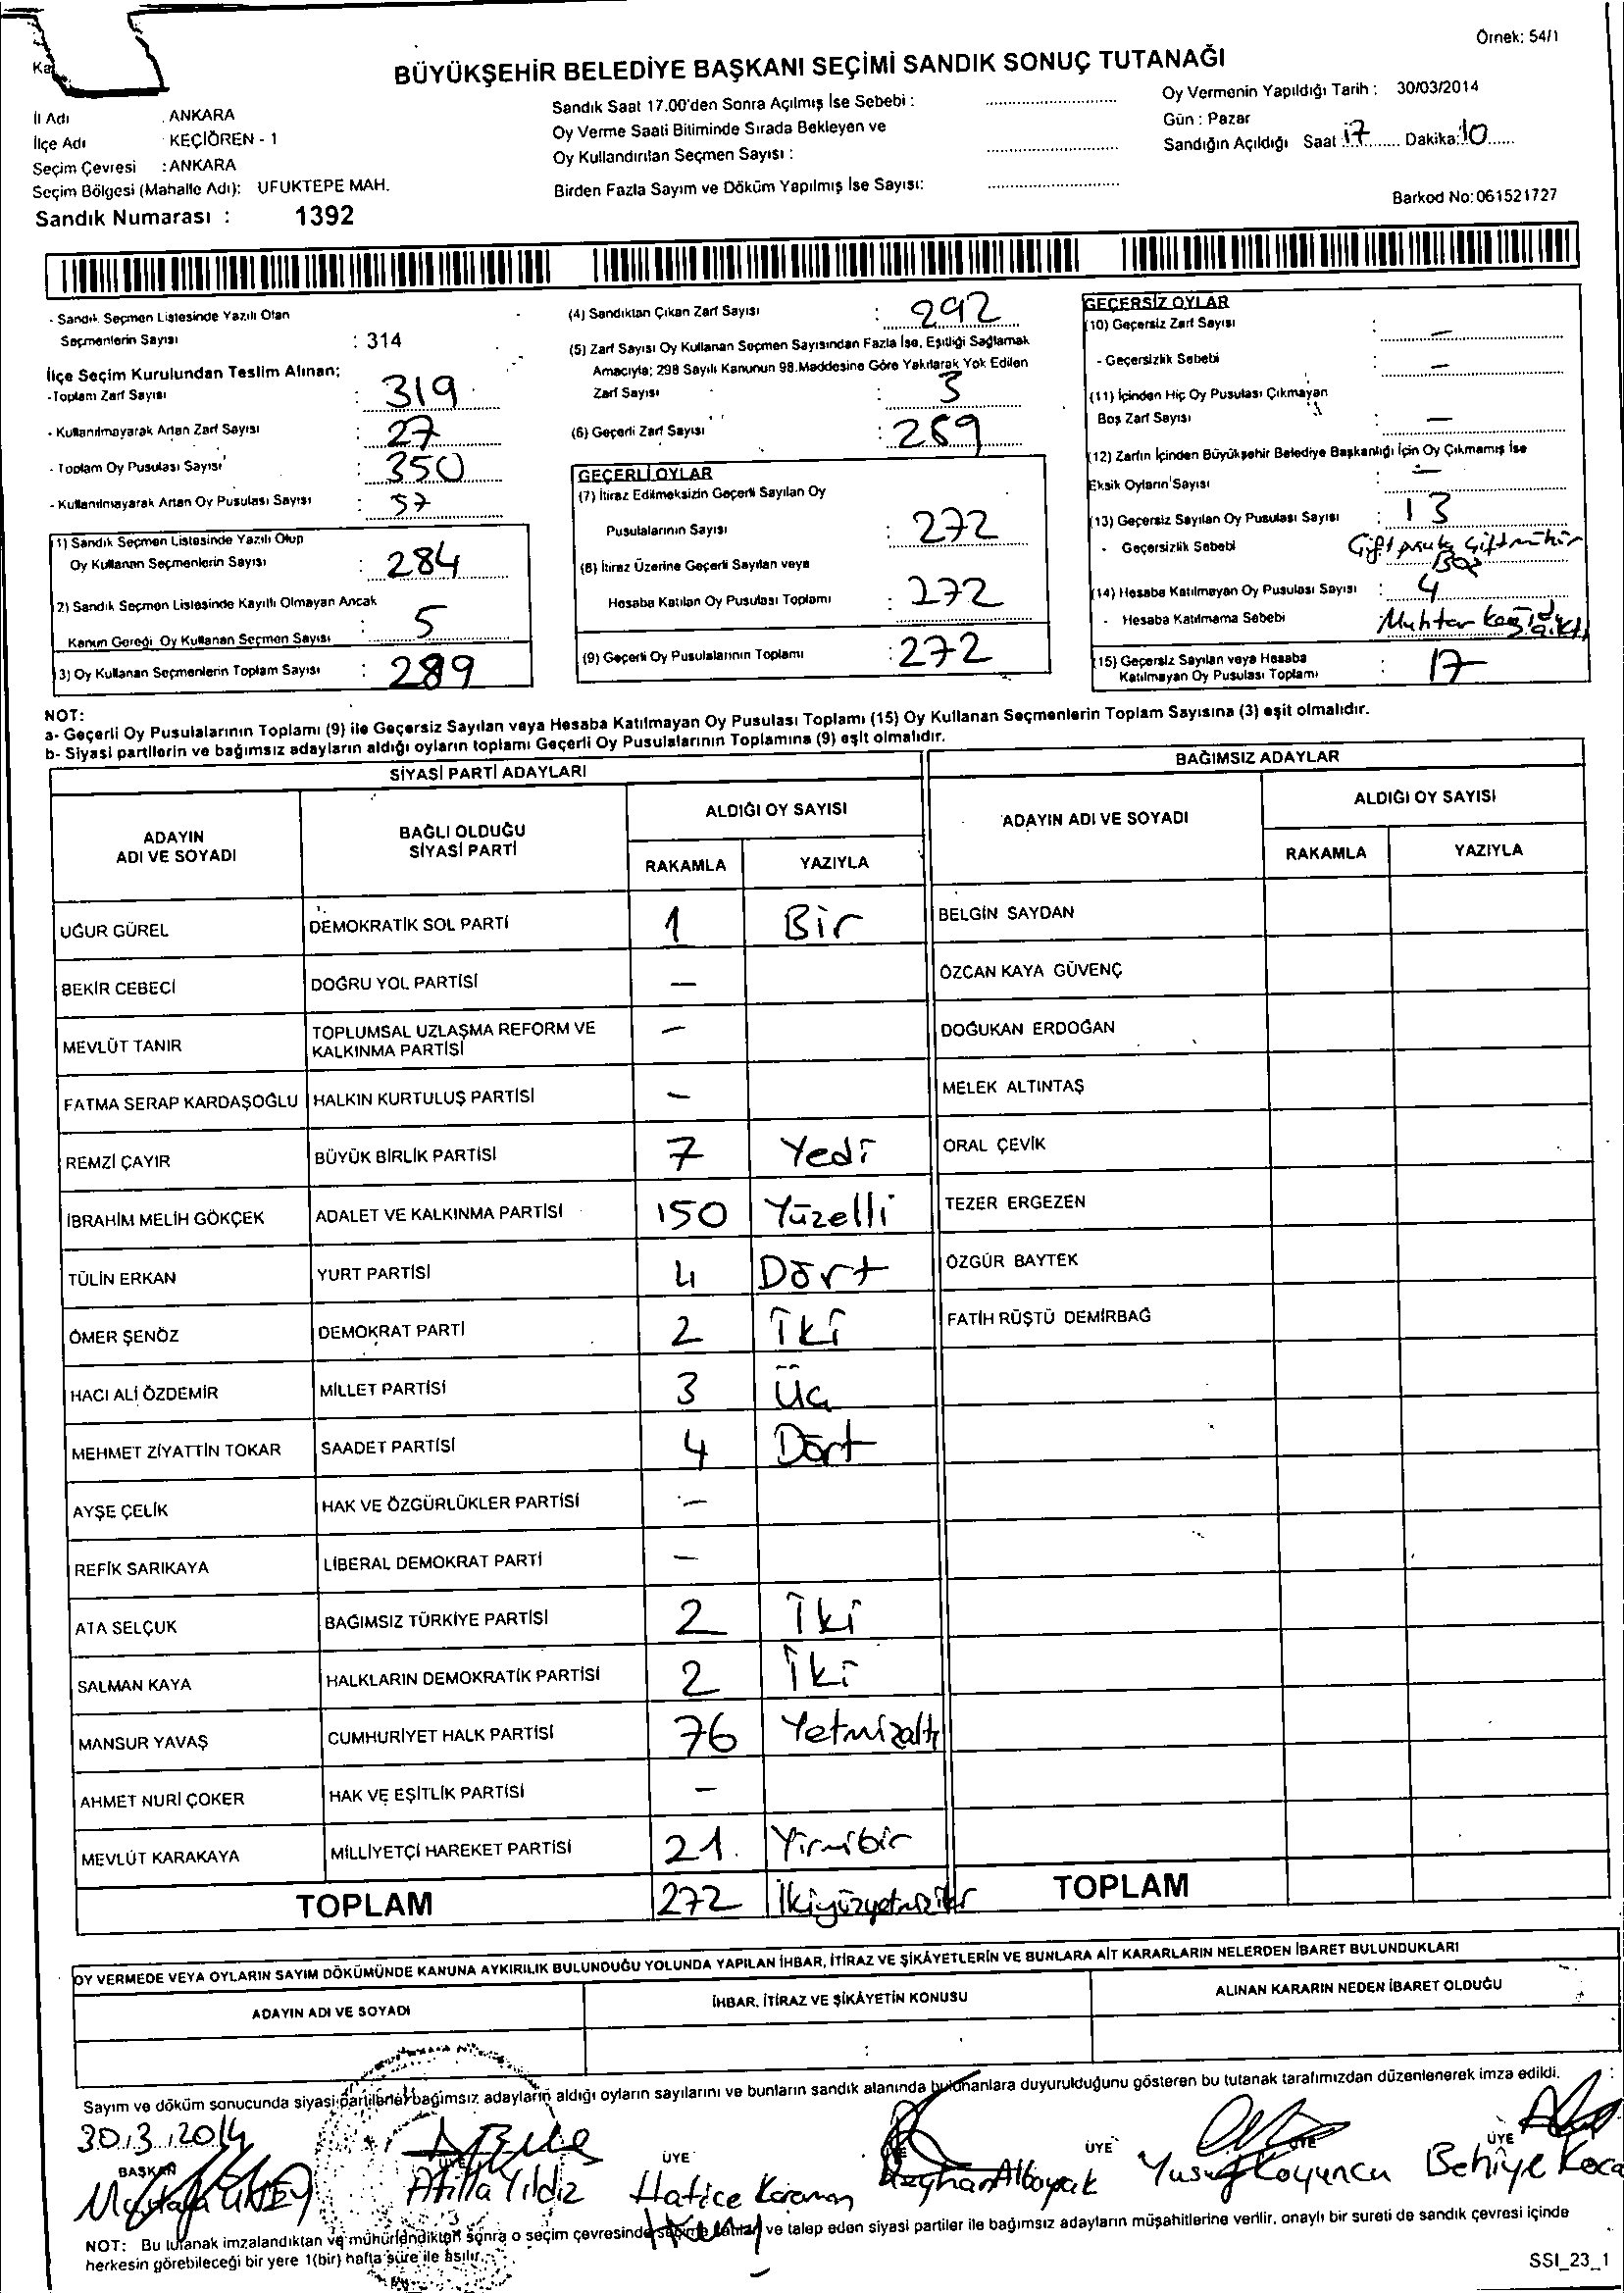 Örnek: 54/1
BÜYÜKŞEHİR BELEDİYE BAŞKANI SEÇİMİ SANDIK SONUÇ TUTANAĞI
İl Adı : ANKARA
İlçe Adı KEÇİÖREN - 1
Seçim Çevresi : ANKARA
Seçim Bölgesi (Mahalle Adı): UFUKTEPE MAH.
Sandık Numarası : 1392
Sandık Saat 17.00'den Sonra Açılmış İse Sebebi :
Oy Verme Saati Bitiminde Sırada Bekleyen ve
Oy Kullandırılan Seçmen Sayısı :
Birden Fazla Sayım ve Döküm Yapılmış İse Sayısı:
Oy Vermenin Yapıldığı Tarih : 30/03/2014
Gün : Pazar
Sandığın Açıldığı Saat : 17 Dakika: 10
Barkod No: 061521727
- Sandık Seçmen Listesinde Yazılı Olan
Seçmenlerin Sayısı : 314
İlçe Seçim Kurulundan Teslim Alınan:
- Toplam Zarf Sayısı : 319
- Kullanılmayarak Artan Zarf Sayısı : 27
- Toplam Oy Pusulası Sayısı : 350
- Kullanılmayarak Artan Oy Pusulası Sayısı : 57
1) Sandık Seçmen Listesinde Yazılı Olup
Oy Kullanan Seçmenlerin Sayısı : 284
2) Sandık Seçmen Listesinde Kayıtlı Olmayan Ancak
Kanun Gereği Oy Kullanan Seçmen Sayısı : 5
3) Oy Kullanan Seçmenlerin Toplam Sayısı : 289
(4) Sandıktan Çıkan Zarf Sayısı : 292
(5) Zarf Sayısı Oy Kullanan Seçmen Sayısından Fazla İse, Eşitliği Sağlamak
Amacıyla; 298 Sayılı Kanunun 98.Maddesine Göre Yakılarak Yok Edilen
Zarf Sayısı : 3
(6) Geçerli Zarf Sayısı : 289
GEÇERLİ OYLAR
(7) İtiraz Edilmeksizin Geçerli Sayılan Oy
Pusulalarının Sayısı : 272
(8) İtiraz Üzerine Geçerli Sayılan veya
Hesaba Katılan Oy Pusulası Toplamı : 272
(9) Geçerli Oy Pusulalarının Toplamı : 272
GEÇERSİZ OYLAR
(10) Geçersiz Zarf Sayısı : —
- Geçersizlik Sebebi : —
(11) İçinden Hiç Oy Pusulası Çıkmayan
Boş Zarf Sayısı : —
(12) Zarfın İçinden Büyükşehir Belediye Başkanlığı İçin Oy Çıkmamış İse
Eksik Oyların Sayısı : —
(13) Geçersiz Sayılan Oy Pusulası Sayısı : 13
- Geçersizlik Sebebi Çift mühür
Boş
(14) Hesaba Katılmayan Oy Pusulası Sayısı : 4
- Hesaba Katılmama Sebebi Muhtar kağıdı çıktı
(15) Geçersiz Sayılan veya Hesaba
Katılmayan Oy Pusulası Toplamı : 17
NOT:
a- Geçerli Oy Pusulalarının Toplamı (9) ile Geçersiz Sayılan veya Hesaba Katılmayan Oy Pusulası Toplamı (15) Oy Kullanan Seçmenlerin Toplam Sayısına (3) eşit olmalıdır.
b- Siyasi partilerin ve bağımsız adayların aldığı oyların toplamı Geçerli Oy Pusulalarının Toplamına (9) eşit olmalıdır.
SİYASİ PARTİ ADAYLARI
BAĞIMSIZ ADAYLAR
ADAYIN
ADI VE SOYADI
BAĞLI OLDUĞU
SİYASİ PARTİ
ALDIĞI OY SAYISI
RAKAMLA YAZIYLA
ADAYIN ADI VE SOYADI
ALDIĞI OY SAYISI
RAKAMLA YAZIYLA
UĞUR GÜREL DEMOKRATİK SOL PARTİ 1 Bir BELGİN SAYDAN
BEKİR CEBECİ DOĞRU YOL PARTİSİ — ÖZCAN KAYA GÜVENÇ
MEVLÜT TANIR TOPLUMSAL UZLAŞMA REFORM VE
KALKINMA PARTİSİ — DOĞUKAN ERDOĞAN
FATMA SERAP KARDAŞOĞLU HALKIN KURTULUŞ PARTİSİ — MELEK ALTINTAŞ
REMZİ ÇAYIR BÜYÜK BİRLİK PARTİSİ 7 Yedi ORAL ÇEVİK
İBRAHİM MELİH GÖKÇEK ADALET VE KALKINMA PARTİSİ 150 Yüzelli TEZER ERGEZEN
TÜLİN ERKAN YURT PARTİSİ 4 Dört ÖZGÜR BAYTEK
ÖMER ŞENÖZ DEMOKRAT PARTİ 2 İki FATİH RÜŞTÜ DEMİRBAĞ
HACI ALİ ÖZDEMİR MİLLET PARTİSİ 3 Üç
MEHMET ZİYATTİN TOKAR SAADET PARTİSİ 4 Dört
AYŞE ÇELİK HAK VE ÖZGÜRLÜKLER PARTİSİ —
REFİK SARIKAYA LİBERAL DEMOKRAT PARTİ —
ATA SELÇUK BAĞIMSIZ TÜRKİYE PARTİSİ 2 İki
SALMAN KAYA HALKLARIN DEMOKRATİK PARTİSİ 2 İki
MANSUR YAVAŞ CUMHURİYET HALK PARTİSİ 76 Yetmişaltı
AHMET NURİ ÇOKER HAK VE EŞİTLİK PARTİSİ —
MEVLÜT KARAKAYA MİLLİYETÇİ HAREKET PARTİSİ 21. Yirmibir
TOPLAM 272 İkiyüzyetmişiki TOPLAM
OY VERMEDE VEYA OYLARIN SAYIM DÖKÜMÜNDE KANUNA AYKIRILIK BULUNDUĞU YOLUNDA YAPILAN İHBAR, İTİRAZ VE ŞİKÂYETLERİN VE BUNLARA AİT KARARLARIN NELERDEN İBARET BULUNDUKLARI
ADAYIN ADI VE SOYADI İHBAR, İTİRAZ VE ŞİKÂYETİN KONUSU ALINAN KARARIN NEDEN İBARET OLDUĞU
Sayım ve döküm sonucunda siyasi partilerle bağımsız adayların aldığı oyların sayılarını ve bunların sandık alanında bulunanlara duyurulduğunu gösteren bu tutanak tarafımızdan düzenlenerek imza edildi.
30.3.2014
BAŞKAN ÜYE ÜYE ÜYE ÜYE
Mustafa Atilla Yıldız Hatice Karaman Reyhan Albayrak Yusuf Koyuncu Behiye Koca
NOT: Bu tutanak imzalandıktan ve mühürlendikten sonra o seçim çevresinde seçime katılan ve talep eden siyasi partiler ile bağımsız adayların müşahitlerine verilir, onaylı bir sureti de sandık çevresi içinde
herkesin görebileceği bir yere 1(bir) hafta süre ile asılır.
SSI_23_1